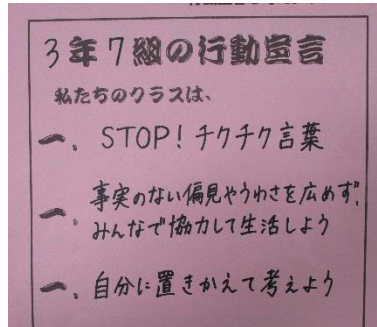 3年7組の行動宣言
私たちのクラスは、
一、STOP！チクチク言葉
一、事実のない偏見やうわさを広めず、
みんなで協力して生活しよう
一、自分に置きかえて考えよう